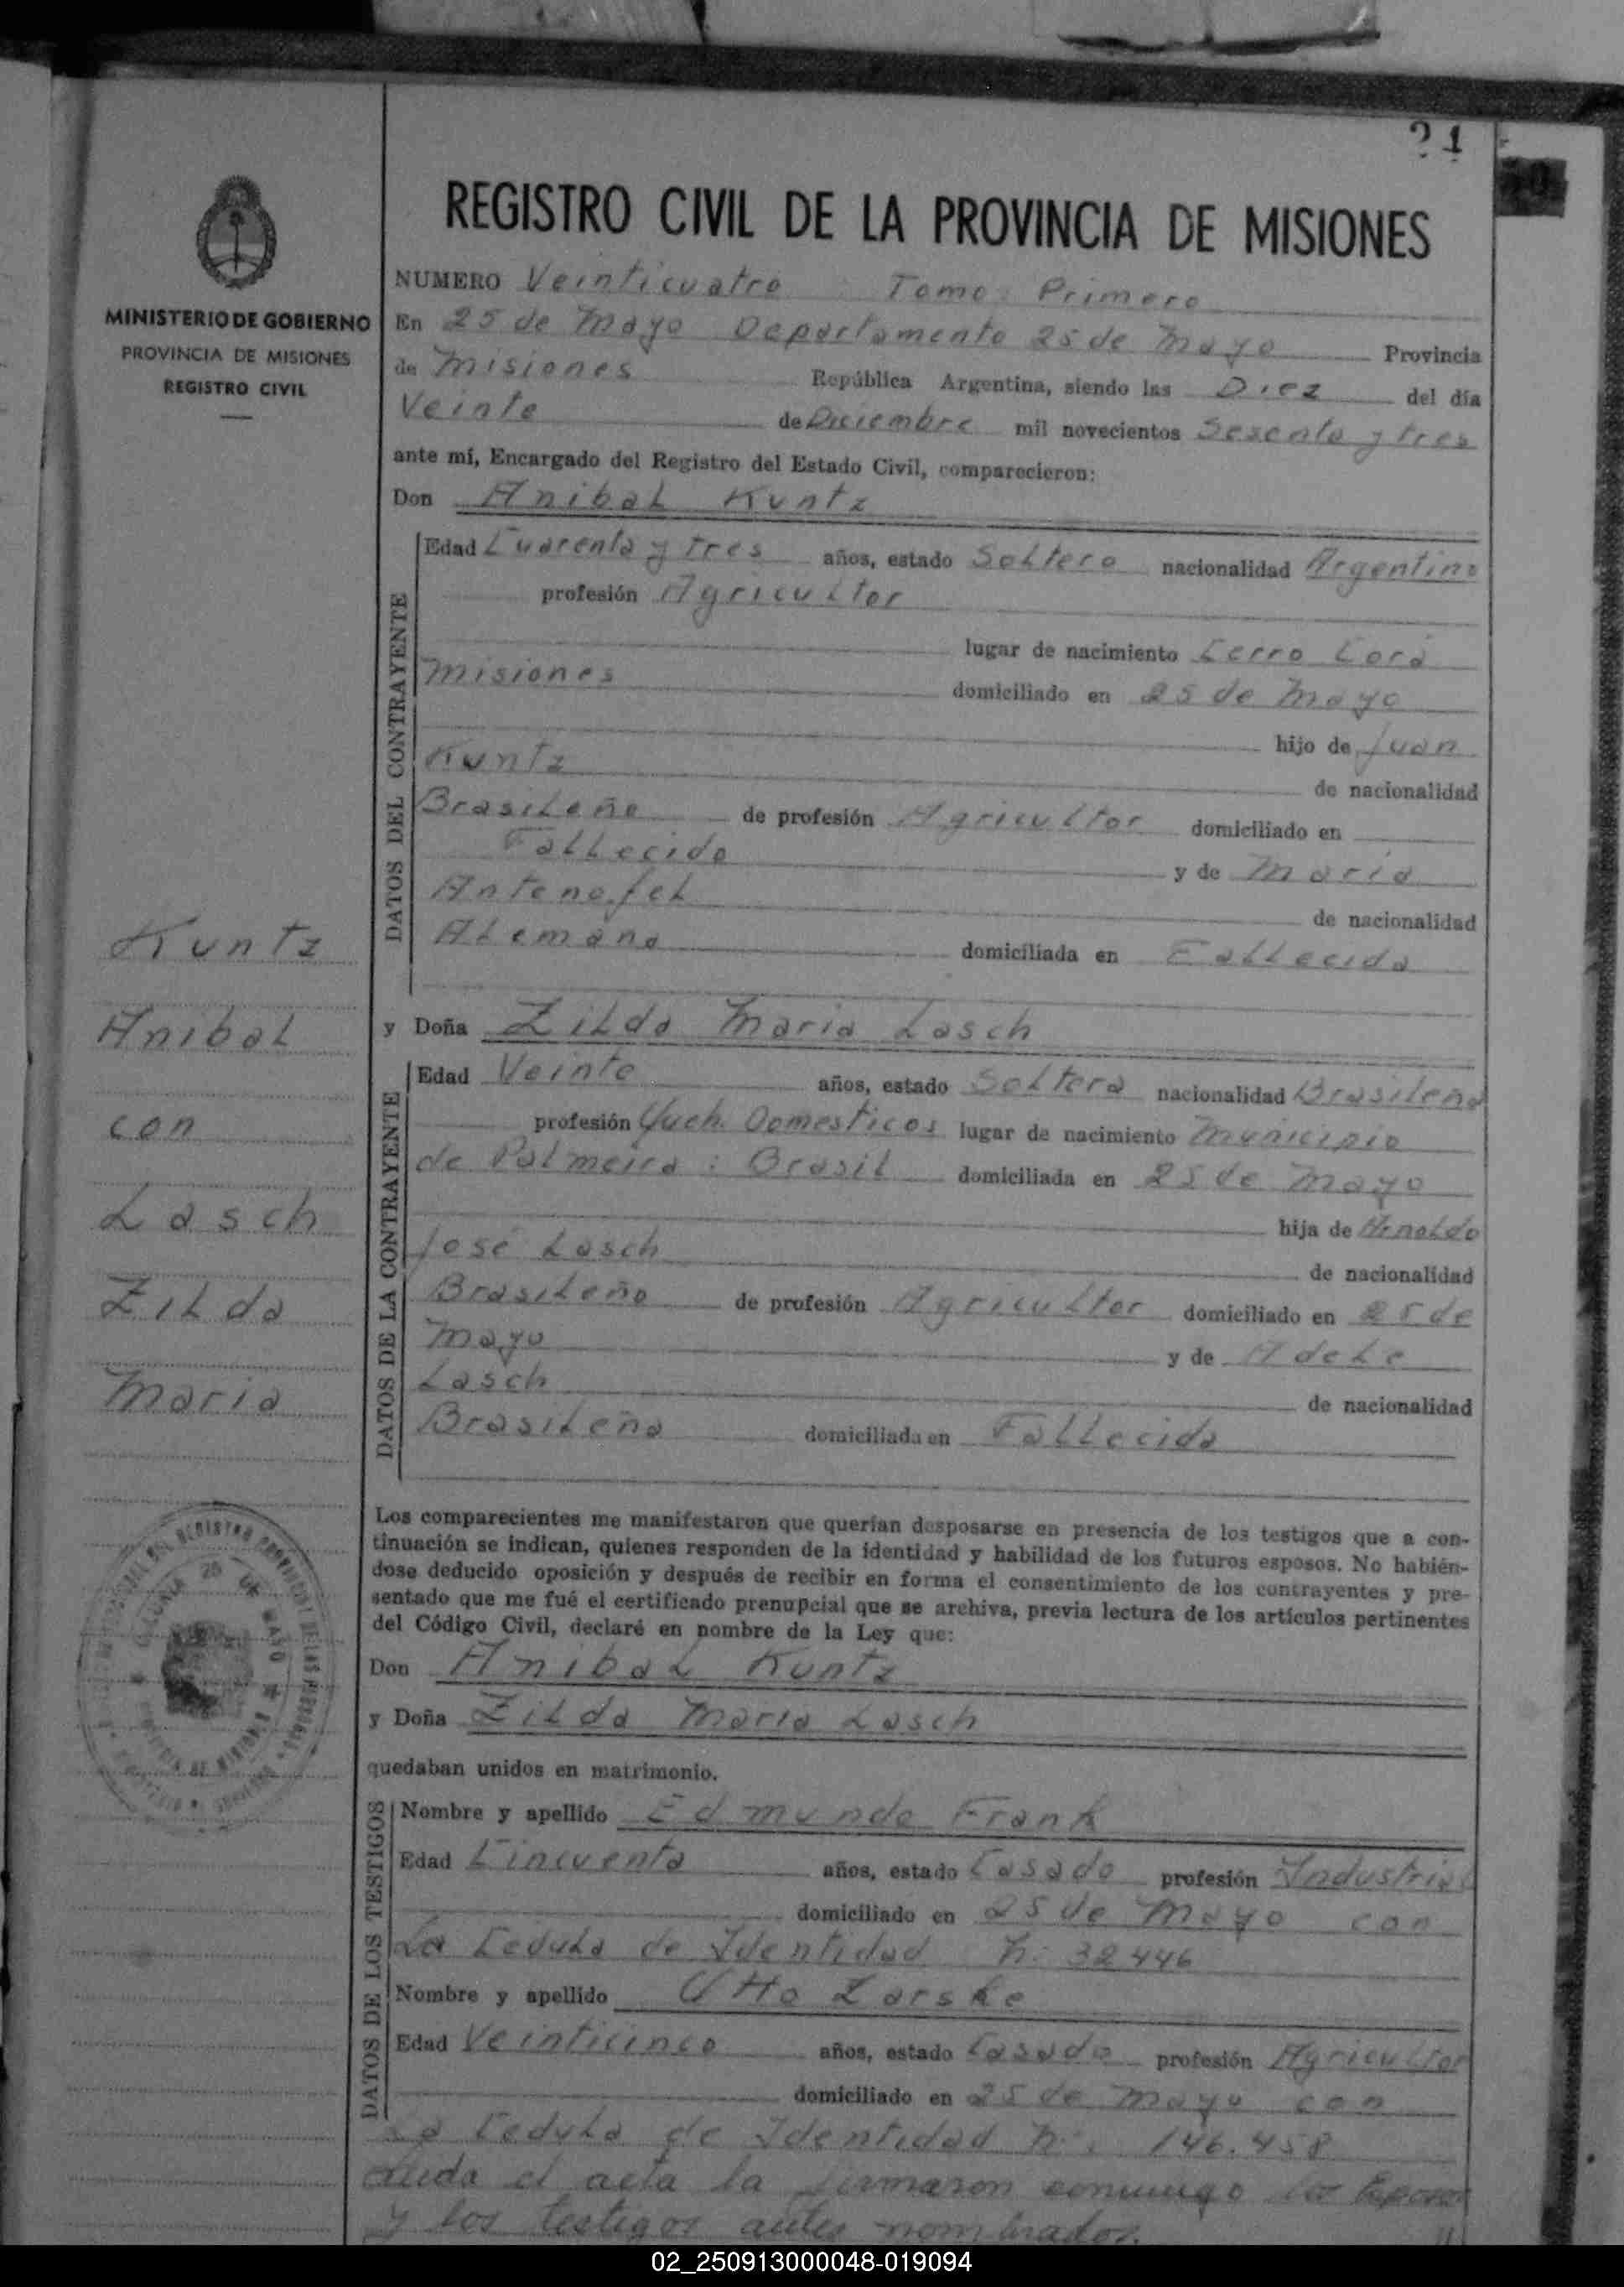 21
REGISTRO CIVIL DE LA PROVINCIA DE MISIONES
MINISTERIO DE GOBIERNO
PROVINCIA DE MISIONES
REGISTRO CIVIL
NUMERO Veinticuatro Tomo: Primero
En 25 de Mayo Departamento 25 de Mayo Provincia
de Misiones República Argentina, siendo las Diez del día
Veinte de Diciembre mil novecientos Sesenta y tres
ante mí, Encargado del Registro del Estado Civil, comparecieron:
Don Anibal Kuntz
DATOS DEL CONTRAYENTE
Edad Cuarenta y tres años, estado Soltero nacionalidad Argentino
profesión Agricultor
lugar de nacimiento Cerro Corá
Misiones domiciliado en 25 de Mayo
hijo de Juan
Kuntz de nacionalidad
Brasileño de profesión Agricultor domiciliado en
Fallecido y de Maria
de nacionalidad
Alemana domiciliada en Fallecida
y Doña Zilda Maria Lasch
DATOS DE LA CONTRAYENTE
Edad Veinte años, estado Soltera nacionalidad Brasileña
profesión Queh. Domesticos lugar de nacimiento Municipio
de Palmeira: Brasil domiciliada en 25 de Mayo
hija de Arnoldo
José Lasch de nacionalidad
Brasileño de profesión Agricultor domiciliado en 25 de
Mayo y de Adele
Lasch de nacionalidad
Brasileña domiciliada en Fallecida
Kuntz
Anibal
con
Lasch
Zilda
Maria
Los comparecientes me manifestaron que querían desposarse en presencia de los testigos que a con-
tinuación se indican, quienes responden de la identidad y habilidad de los futuros esposos. No habién-
dose deducido oposición y después de recibir en forma el consentimiento de los contrayentes y pre-
sentado que me fué el certificado prenupcial que se archiva, previa lectura de los artículos pertinentes
del Código Civil, declaré en nombre de la Ley que:
Don Anibal Kuntz
y Doña Zilda Maria Lasch
quedaban unidos en matrimonio.
DATOS DE LOS TESTIGOS
Nombre y apellido Edmundo Frank
Edad Cincuenta años, estado Casado profesión Industrial
domiciliado en 25 de Mayo con
La Cedula de Identidad N: 32446
Nombre y apellido Otto Zarske
Edad Veinticinco años, estado Casado profesión Agricultor
domiciliado en 25 de Mayo con
La Cedula de Identidad N: 146.458
Leida el acta la firmaron conmigo los Esposos
y los testigos antes nombrados.
02_250913000048-019094